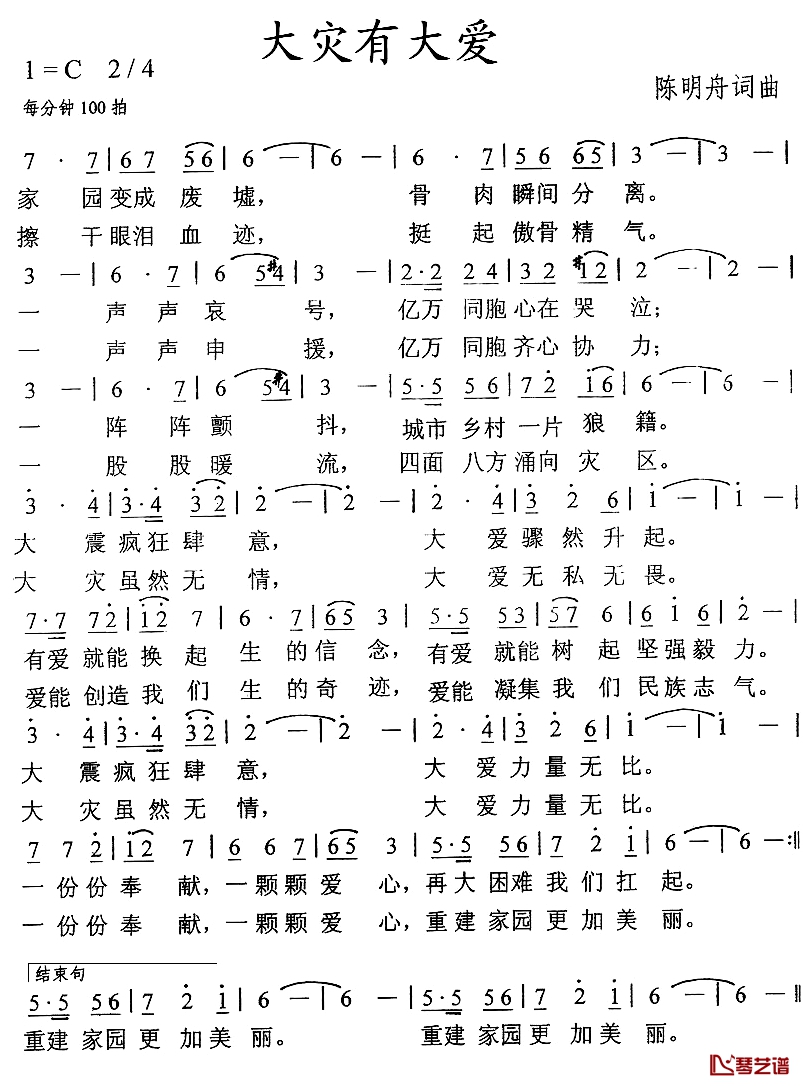 大灾有大爱
1=C 2/4
陈明舟词曲
每分钟100拍
7 · 7 | 6 7 5 6 | 6 — | 6 — | 6 · 7 | 5 6 6 5 | 3 — | 3 — |
家 园变成 废 墟, 骨 肉瞬间 分 离。
擦 干眼泪 血 迹, 挺 起傲骨 精 气。
3 — | 6 · 7 | 6 5 #4 | 3 — | 2 · 2 2 4 | 3 2 #1 2 | 2 — | 2 — |
一 声 声哀 号, 亿万 同胞心在 哭 泣;
一 声 声申 援, 亿万 同胞齐心 协 力;
3 — | 6 · 7 | 6 5 #4 | 3 — | 5 · 5 5 6 | 7 2 1 6 | 6 — | 6 — |
一 阵 阵颤 抖, 城市 乡村一片 狼 籍。
一 股 股暖 流, 四面 八方涌向 灾 区。
3 · 4 | 3 · 4 3 2 | 2 — | 2 — | 2 · 4 | 3 2 6 | 1 — | 1 — |
大 震疯狂肆 意, 大 爱骤然升起。
大 灾虽然无 情, 大 爱无私无畏。
7 · 7 7 2 | 1 2 7 | 6 · 7 | 6 5 3 | 5 · 5 5 3 | 5 7 6 | 6 1 6 | 2 — |
有爱 就能 换 起 生 的信 念, 有爱 就能 树 起 坚强毅 力。
爱能 创造 我 们 生 的奇 迹, 爱能 凝集 我 们 民族志 气。
3 · 4 | 3 · 4 3 2 | 2 — | 2 — | 2 · 4 | 3 2 6 | 1 — | 1 — |
大 震疯狂肆 意, 大 爱力量无比。
大 灾虽然无 情, 大 爱力量无比。
7 7 2 | 1 2 7 | 6 6 7 | 6 5 3 | 5 · 5 5 6 | 7 2 1 | 6 — | 6 — :‖
一份份奉 献,一颗颗爱 心,再大困难我们扛 起。
一份份奉 献,一颗颗爱 心,重建家园更加美 丽。
结束句
5 · 5 5 6 | 7 2 1 | 6 — | 6 — | 5 · 5 5 6 | 7 2 1 | 6 — | 6 — ‖
重建 家园更 加美 丽。 重建 家园更 加美 丽。
琴艺谱